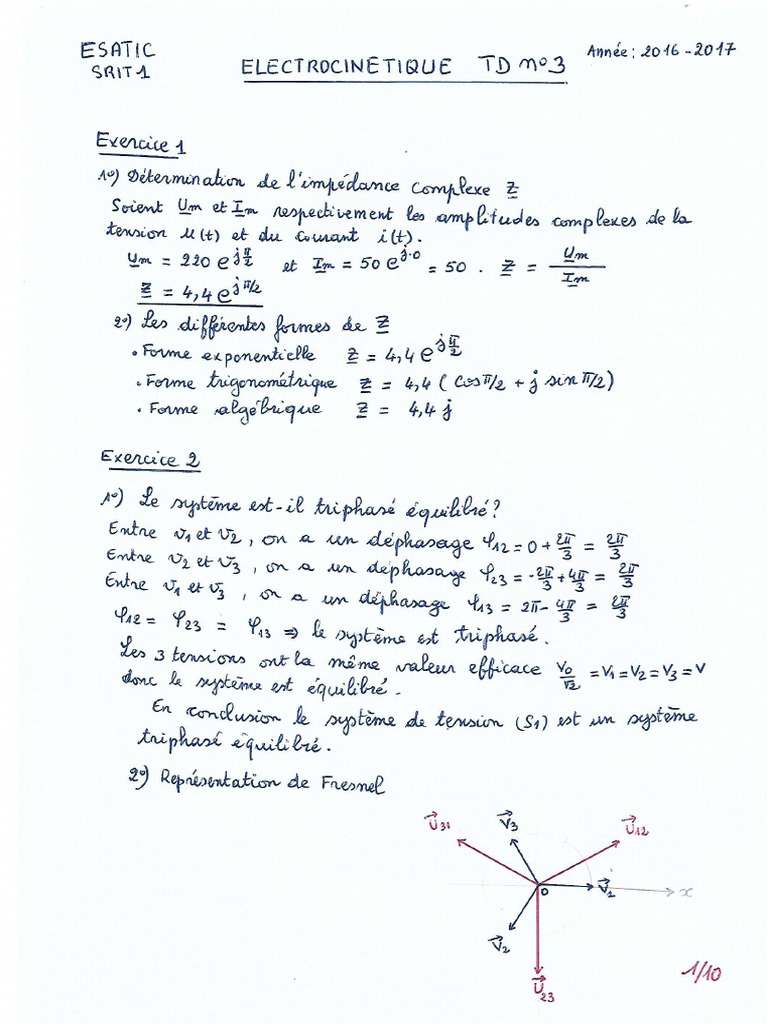 ESATIC
SRIT1
ELECTROCINETIQUE TD n°3
Année: 2016-2017
Exercice 1
1°) Détermination de l'impédance complexe Z
Soient Um et Im respectivement les amplitudes complexes de la
tension u(t) et du courant i(t).
Um = 220 e^jπ/2 et Im = 50 e^j·0 = 50 . Z = Um/Im
Z = 4,4 e^jπ/2
2°) Les différentes formes de Z
• Forme exponentielle Z = 4,4 e^jπ/2
• Forme trigonométrique Z = 4,4 ( cos π/2 + j sin π/2)
• Forme algébrique Z = 4,4 j
Exercice 2
1°) Le système est-il triphasé équilibré?
Entre v1 et v2 , on a un déphasage φ12 = 0 + 2π/3 = 2π/3
Entre v2 et v3 , on a un déphasage φ23 = -2π/3 + 4π/3 = 2π/3
Entre v1 et v3 , on a un déphasage φ13 = 2π - 4π/3 = 2π/3
φ12 = φ23 = φ13 ⇒ le système est triphasé.
Les 3 tensions ont la même valeur efficace V0/√2 = V1 = V2 = V3 = V
donc le système est équilibré.
En conclusion le système de tension (S1) est un système
triphasé équilibré.
2°) Représentation de Fresnel
U31
V3
U12
O
V2
x
V2
U23
1/10